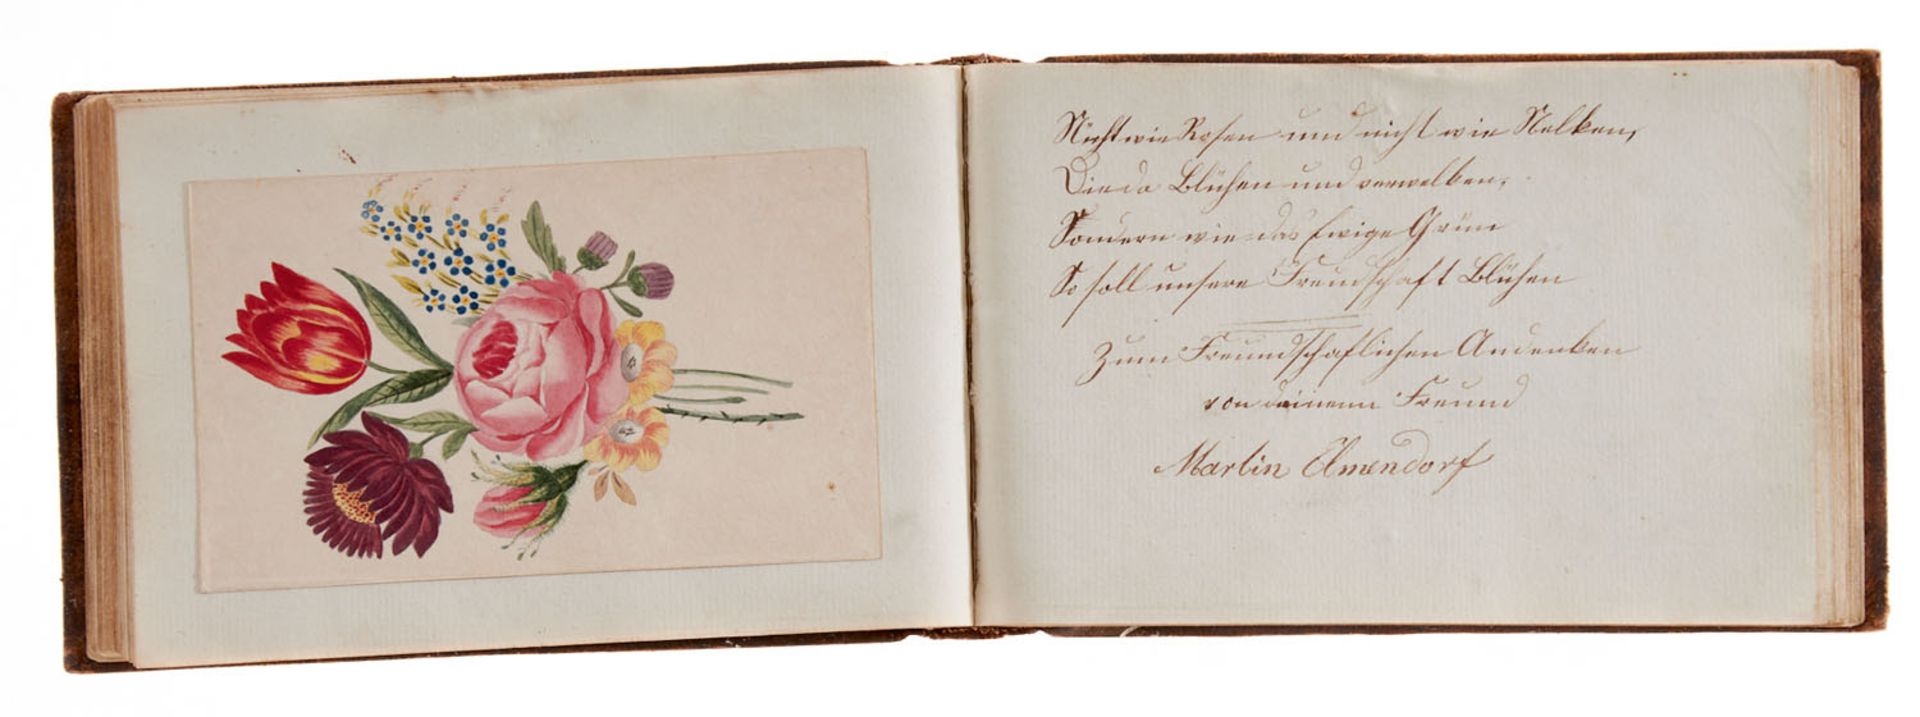 Nicht wie Rosen und nicht wie Nelken,
Die da Blühen und verwelken,
Sondern wie das Ewige Grün
So soll unsere Freundschaft Blühen
Zum Freundschaflichen Andenken
von deinem Freund
Martin Elmendorf